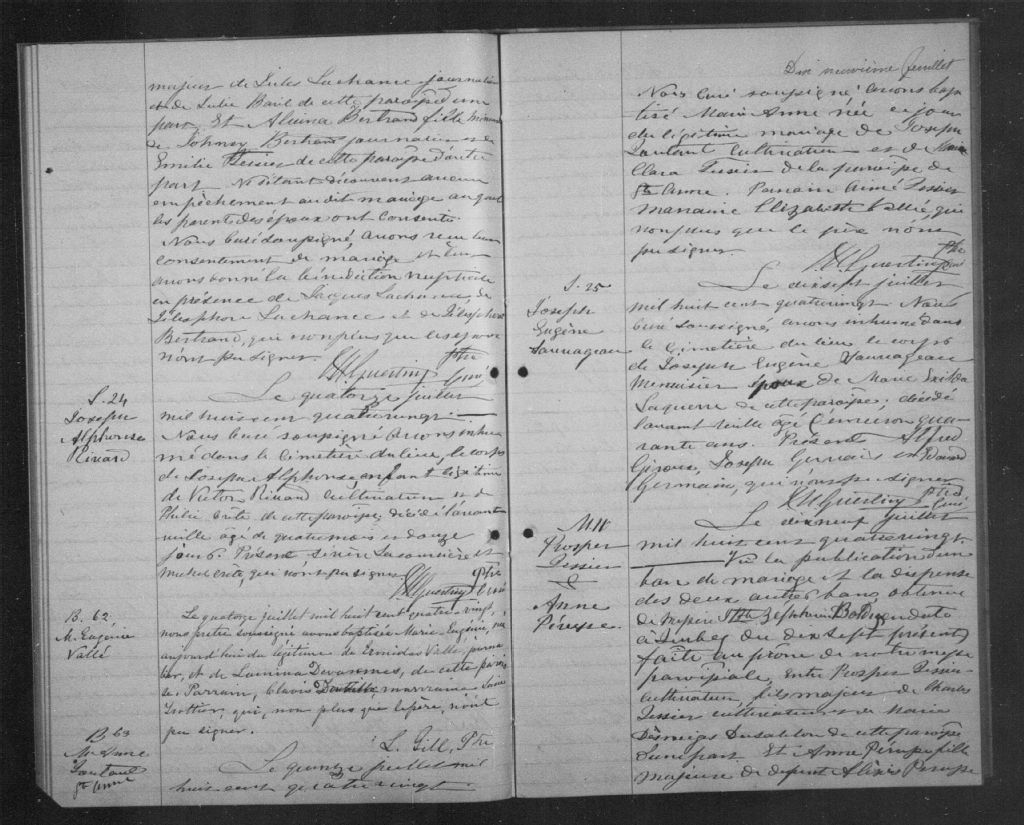 majeur de Jules Lachance journalier
et de Julie Baril de cette paroisse d'une
part. Et Alvina Bertrand fille mineure
de Johnny Bertrand journalier et de
Emilie Tessier de cette paroisse d'autre
part. N'étant découvert aucun
empêchement au dit mariage auquel
les parents des époux ont consenti.
Nous curé soussigné, avons reçu leur
consentement de mariage et leur
avons donné la bénédiction nuptiale
en présence de Jacques Lachance, de
Télesphore Lachance et de Télesphore
Bertrand, qui non plus que les époux
n'ont pu signer.
Ptre
Curé
S. 24
Joseph
Alphonse
Rivard
Le quatorze juillet
mil huit cent quatrevingt.
Nous curé soussigné avons inhu
mé dans le cimetière du lieu, le corps
de Joseph Alphonse, enfant légitime
de Victor Rivard cultivateur et de
Philie Crête de cette paroisse, décédé l'avant
veille agé de quatre mois et douze
jours. Présent
Michel Crête qui n'ont pu signer
Ptre
Curé
B. 62
M. Eugénie
Vallé
Le quatorze juillet mil huit cent quatre vingt,
nous prêtre soussigné avons baptisée Marie Eugénie, née
aujourd'hui du légitime de Ermidas Vallé,
et de Lumina de cette parois
se. Parrain, Clovis marraine
Trottier, qui, non plus que le père, n'ont
pu signer.
L. Gill, Ptre
B. 63
M. Anne
Ste Anne
Le quinze juillet mil
huit cent quatrevingt
Dix neuvième feuillet
Nous curé soussigné avons bap
tisé Marie Anne née ce jour
du légitime mariage de Joseph
cultivateur et de Marie
Clara Tessier de la paroisse de
Ste Anne. Parrain Aimé Tessier
Marraine Elizabeth Vallée qui
non plus que le père n'ont
pu signer.
Ptre
S. 25
Joseph
Eugène
Sauvageau
Le dix sept juillet
mil huit cent quatrevingt Nous
curé soussigné, avons inhumé dans
le cimetière du lieu le corps
de Joseph Eugène Sauvageau
menuisier époux de Marie
Laquerre de cette paroisse, décédé
l'avant veille agé d'environ qua
rante ans. Présent Alfred
Giroux, Joseph Gervais et Edouard
Germain, qui n'ont pu signer
Ptre
Curé
M. 11
Prosper
Tessier
&
Anne
Péruspe.
Le dix neuf juillet
mil huit cent quatrevingt.
Vu la publication d'un
ban de mariage et la dispense
des deux autres bans obtenue
de Messire Zéphirin Bolduc en date
du dix sept présent
faite au prône de notre messe
paroissiale, entre Prosper Tessier
cultivateur, fils majeur de Charles
Tessier cultivateur et de Marie
Desneiges Dusablon de cette paroisse
d'une part. Et Anne Péruspe fille
majeure de défunt Alexis Péruspe